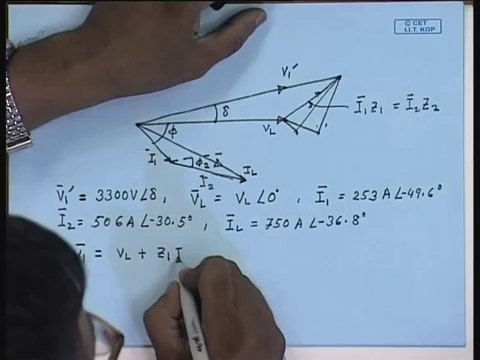 © CET
I.I.T. KGP
V̄₁′
Ī₁Z₁ = Ī₂Z₂
δ
V_L
φ
Ī₁
φ₂
I_L
Ī₂
V̄₁′ = 3300V∠δ , V̄_L = V_L∠0° , Ī₁ = 253 A∠-49.6°
Ī₂ = 506 A∠-30.5° , Ī_L = 750 A∠-36.8°
= V_L + Z₁ I